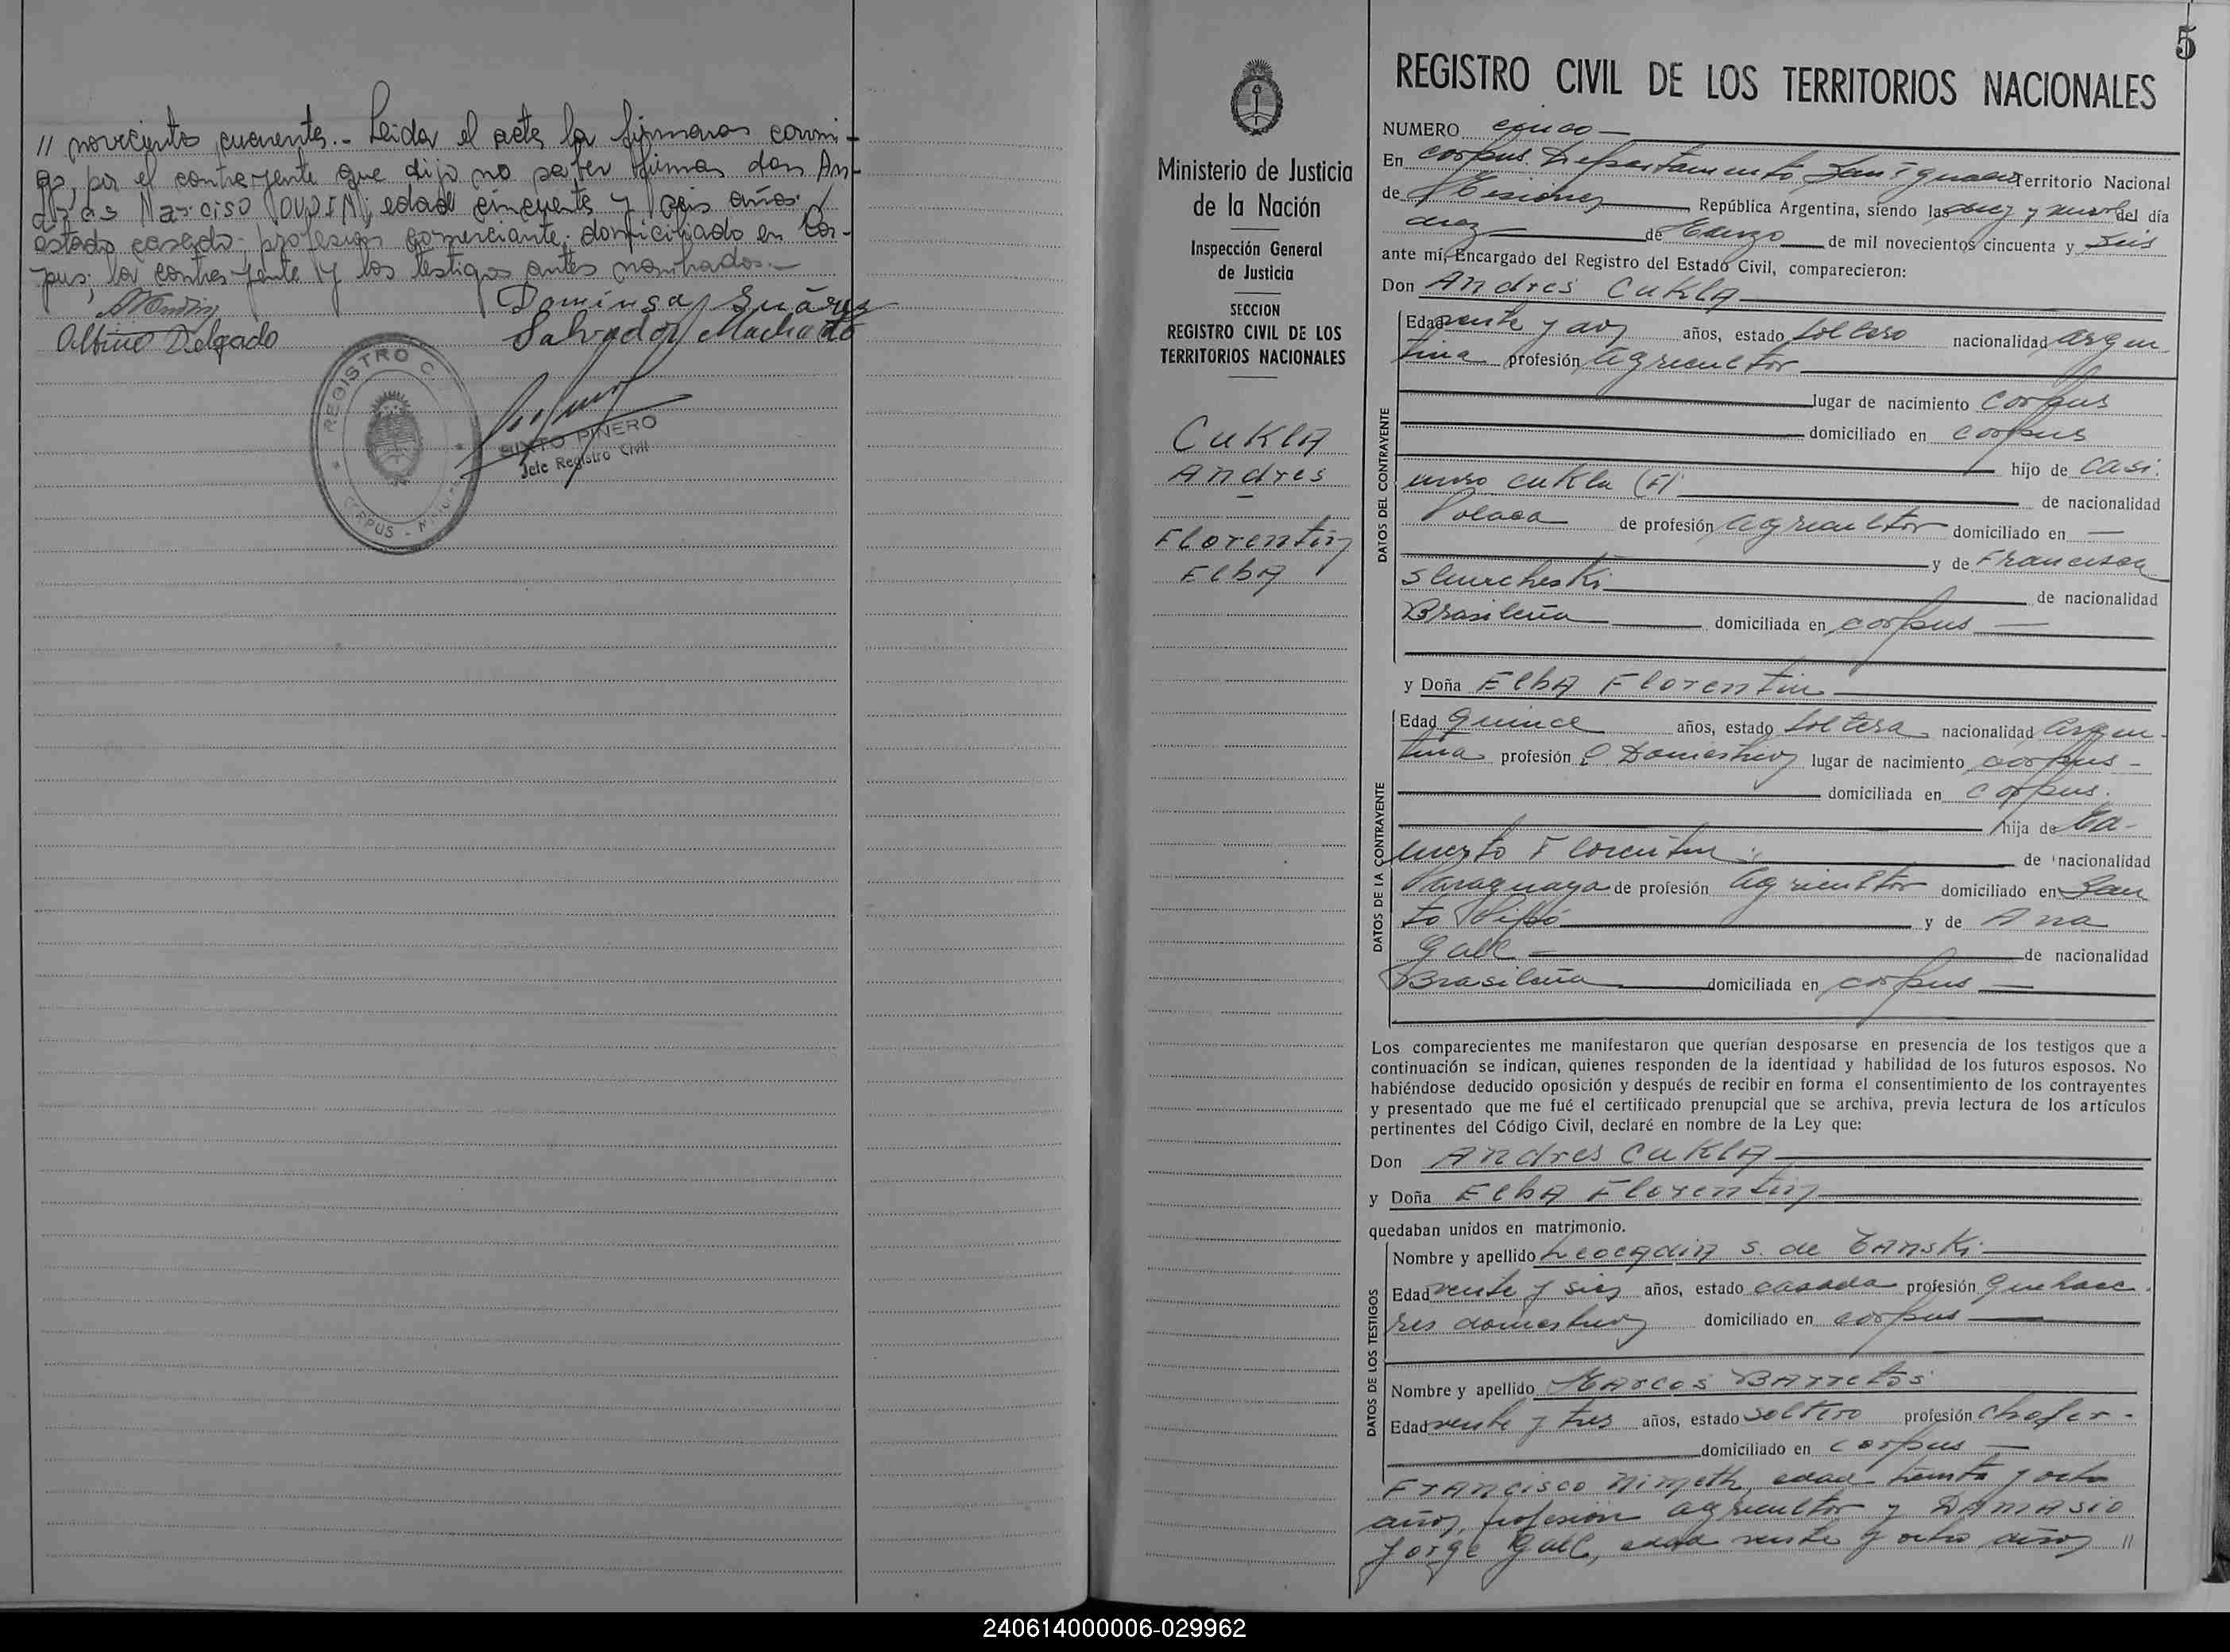 // novecientos cuarenta.- Leida el acta la firmaron conmi-
go, por el contrayente que dijo no saber firmar don An-
drés Narciso edad cincuenta y seis años.
estado casado. profesión comerciante. domiciliado en Cor-
pus; la contrayente y los testigos antes nombrados.-
Dominga Suárez
Albino Delgado
Salvador Machado
REGISTRO C
CORPUS
SIXTO PIÑERO
Jefe Registro Civil
5
Ministerio de Justicia
de la Nación
Inspección General
de Justicia
SECCION
REGISTRO CIVIL DE LOS
TERRITORIOS NACIONALES
Cukla
Andres
Florentin
Elba
REGISTRO CIVIL DE LOS TERRITORIOS NACIONALES
NUMERO cinco
En Corpus. Departamento San Ignacio Territorio Nacional
de Misiones República Argentina, siendo las diez y nueve del día
diez de Marzo de mil novecientos cincuenta y seis
ante mí, Encargado del Registro del Estado Civil, comparecieron:
Don Andres Cukla
Edad años, estado soltero nacionalidad argen
tina profesión agricultor
lugar de nacimiento Corpus
DATOS DEL CONTRAYENTE
domiciliado en Corpus
hijo de Casi
miro Cukla (F)
de nacionalidad
Polaca de profesión agricultor domiciliado en —
y de Francisca
de nacionalidad
Brasileña domiciliada en Corpus
y Doña Elba Florentin
Edad quince años, estado soltera nacionalidad argen-
tina profesión Q. Domesticos lugar de nacimiento Corpus -
DATOS DE LA CONTRAYENTE
domiciliada en Corpus.
hija de
Florentin
de nacionalidad
Paraguaya de profesión agricultor domiciliado en San
to Pipó y de Ana
Gall de nacionalidad
Brasileña domiciliada en Corpus
Los comparecientes me manifestaron que querían desposarse en presencia de los testigos que a
continuación se indican, quienes responden de la identidad y habilidad de los futuros esposos. No
habiéndose deducido oposición y después de recibir en forma el consentimiento de los contrayentes
y presentado que me fué el certificado prenupcial que se archiva, previa lectura de los artículos
pertinentes del Código Civil, declaré en nombre de la Ley que:
Don Andres Cukla
y Doña Elba Florentin
quedaban unidos en matrimonio.
DATOS DE LOS TESTIGOS
Nombre y apellido Leocadia S. de
Edad veinte y seis años, estado casada profesión quehace-
res domesticos domiciliado en Corpus
Nombre y apellido Marcos Barretos
Edad veinte y tres años, estado soltero profesión chofer -
domiciliado en Corpus
Francisco Nimeth, edad treinta y ocho
años, profesión agricultor y Damasio
Jorge Gall, edad veinte y ocho años //
240614000006-029962